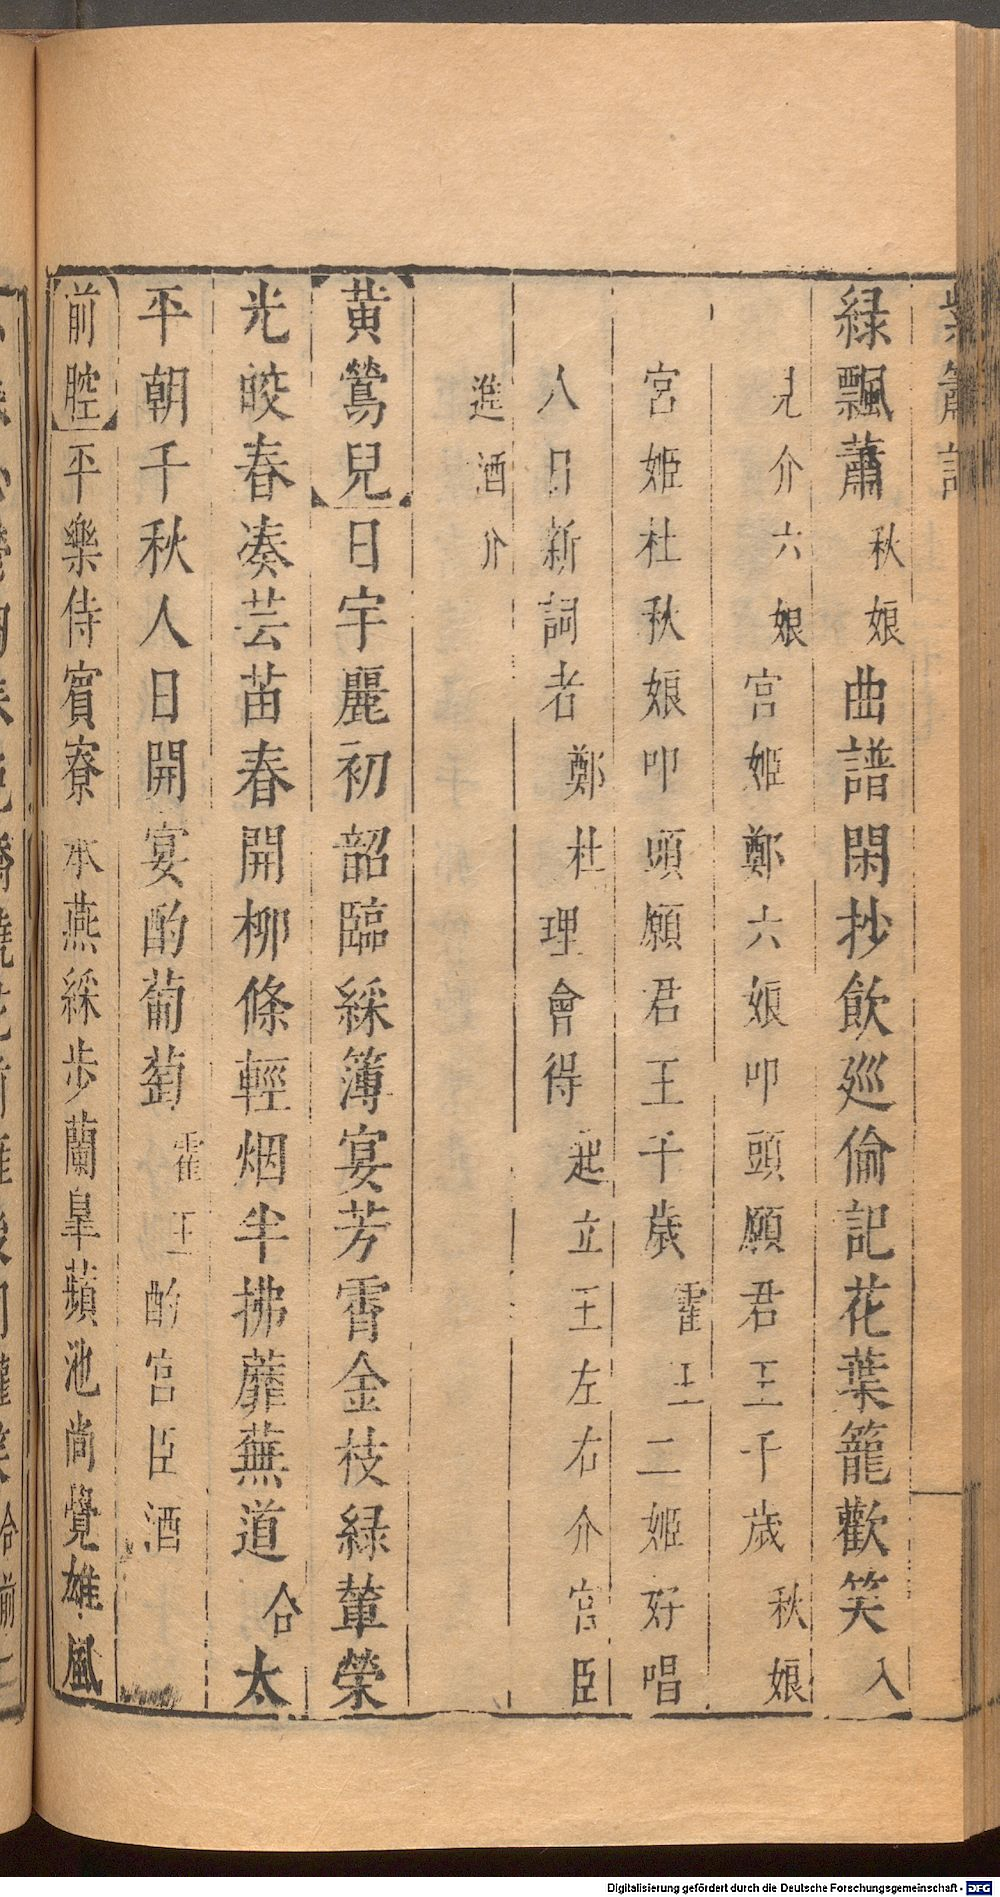 紫簫記
綠飄蕭秋娘曲譜閑抄飲巡偷記花葉籠歡笑入
見介六娘宮姬鄭六娘叩頭願君王千歲秋娘
宮姬杜秋娘叩頭願君王千歲霍王二姬好唱
人日新詞者鄭杜理會得起立王左右介宮臣
進酒介
黃鶯兒日宇麗初韶臨綵簿宴芳霄金枝綠葦榮
光皎春凑芸苗春開柳條輕烟半拂蘼蕪道合太
平朝千秋人日開宴酌葡萄霍王酌宮臣酒
前腔平樂侍賓寮承燕綵步蘭皋蘋池尚覺雄風
Digitalisierung gefördert durch die Deutsche Forschungsgemeinschaft - DFG